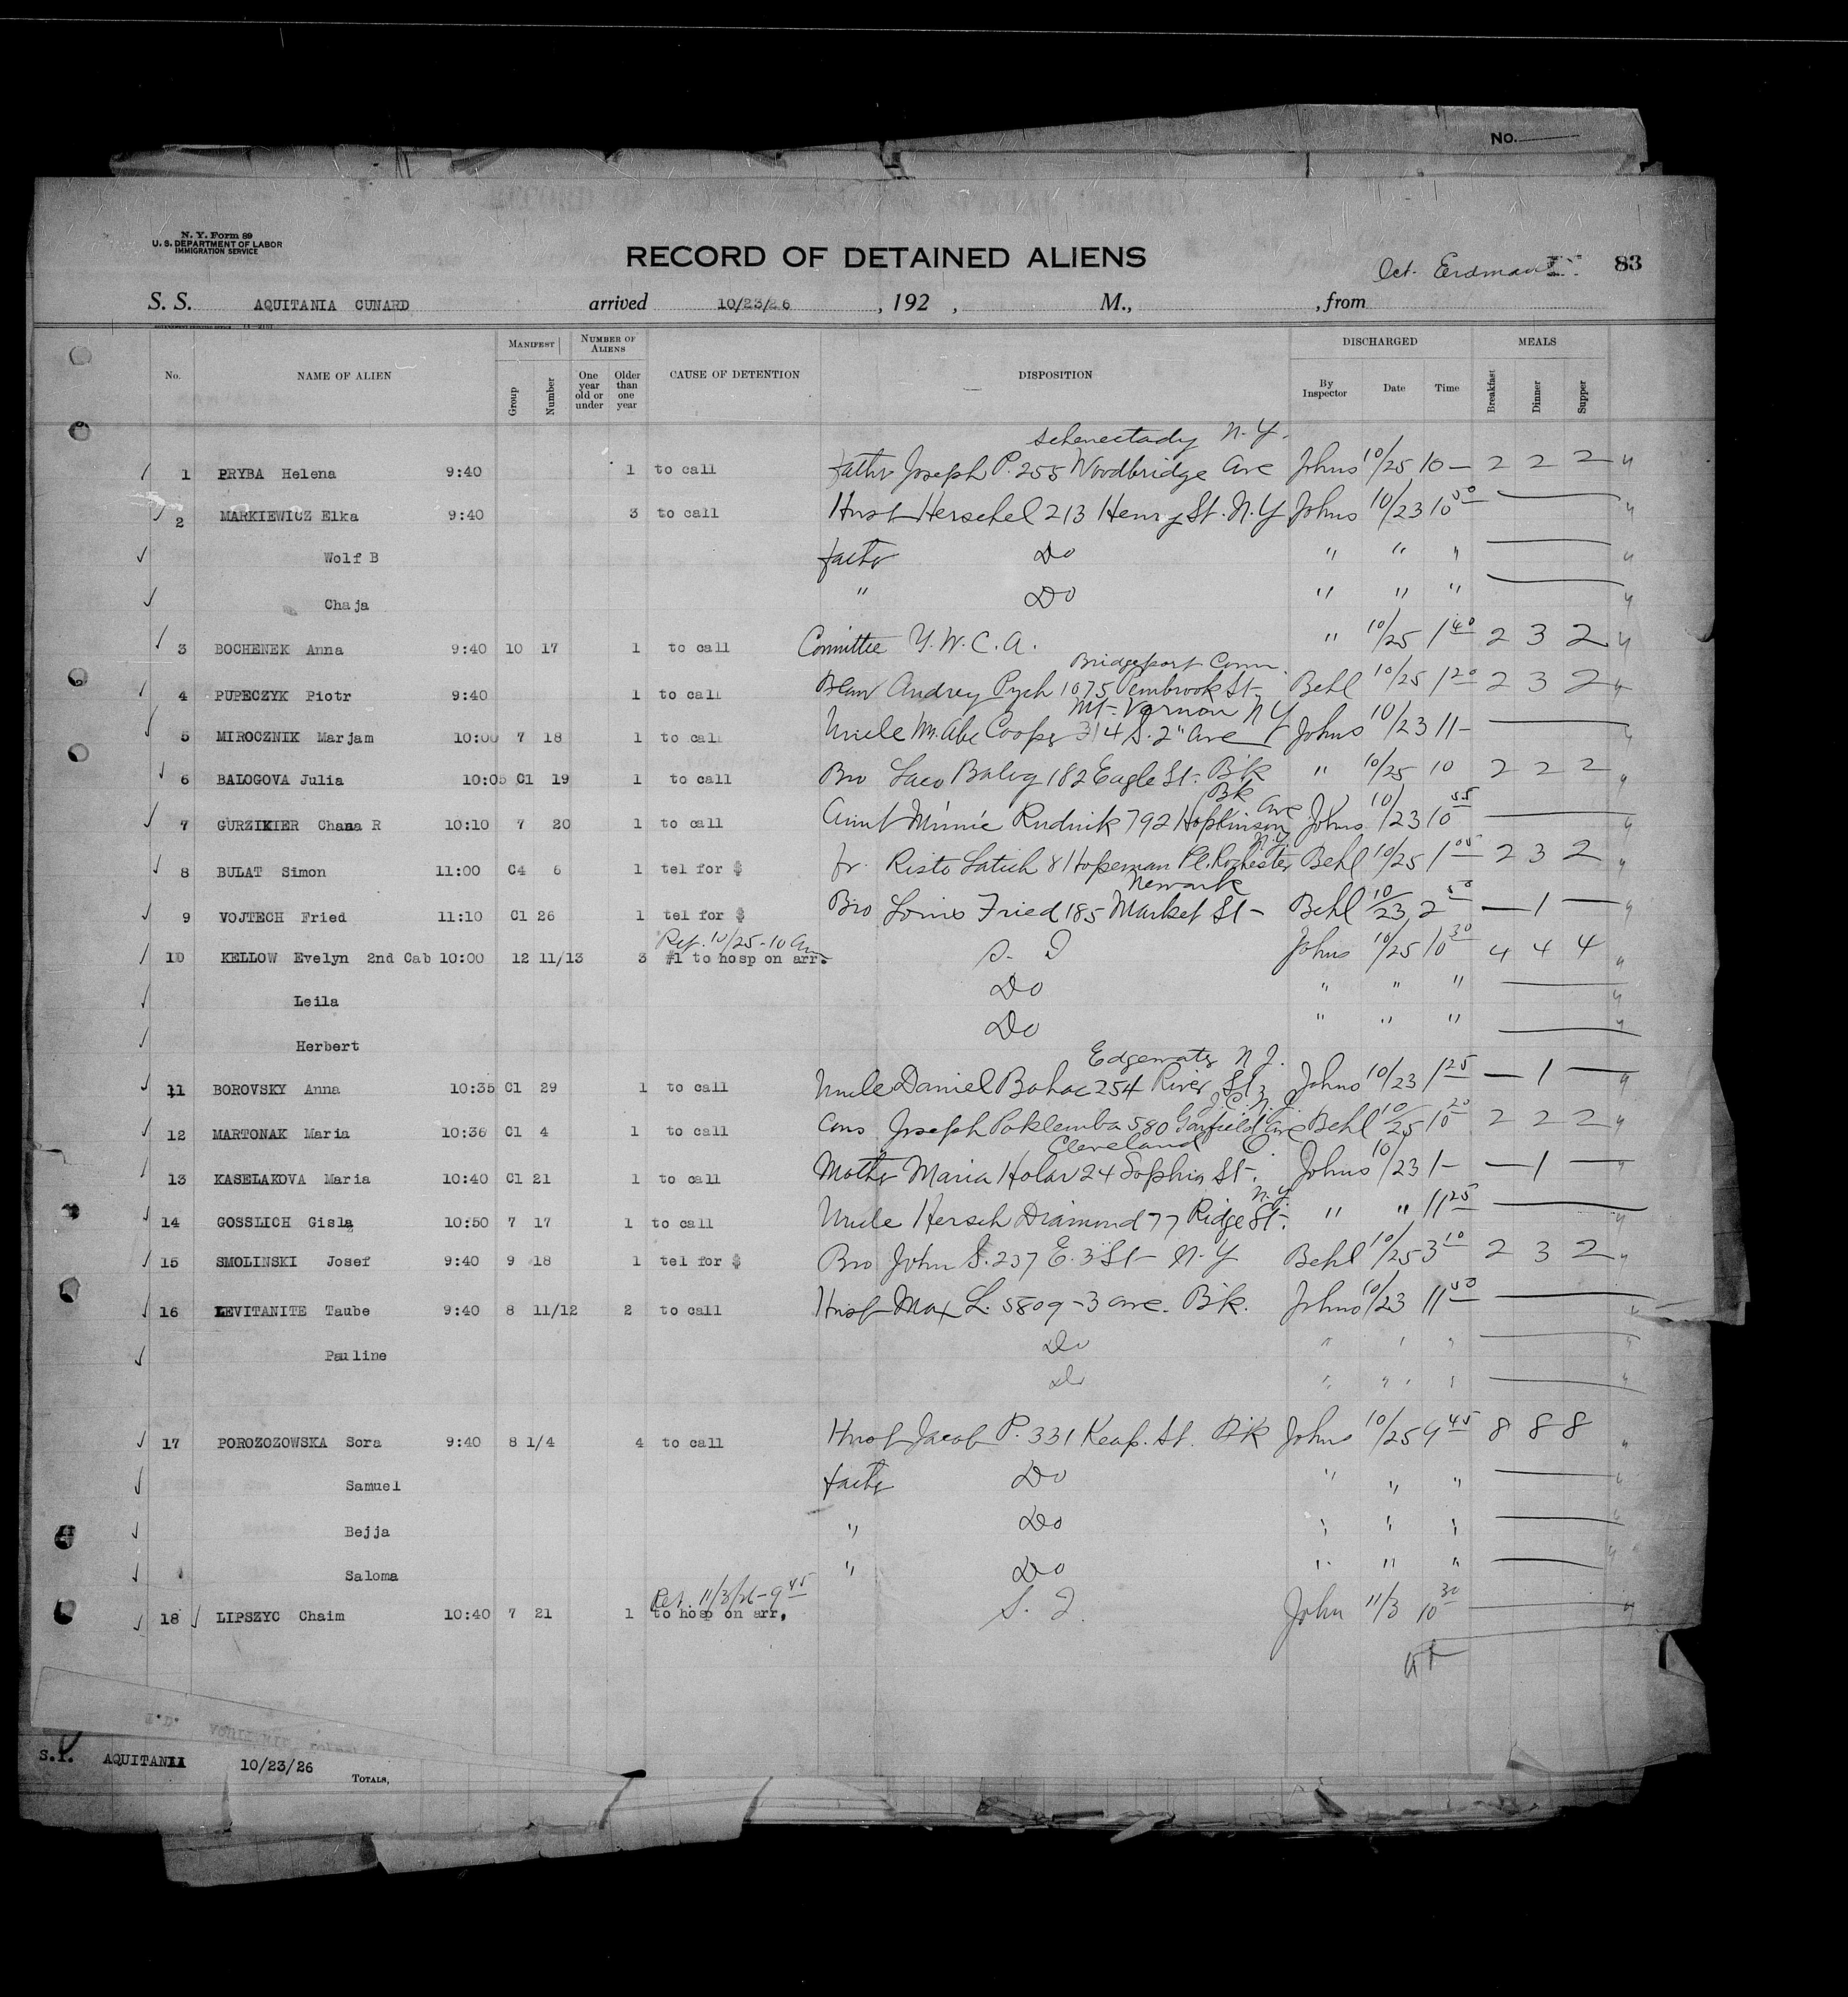 No.
N. Y. Form 89
U. S. DEPARTMENT OF LABOR
IMMIGRATION SERVICE
RECORD OF DETAINED ALIENS
Oct. 83
S. S. AQUITANIA CUNARD arrived 10/23/26, 192 , M., , from
No. NAME OF ALIEN MANIFEST Group Number NUMBER OF ALIENS One year old or under Older than one year CAUSE OF DETENTION DISPOSITION DISCHARGED By Inspector Date Time MEALS Breakfast Dinner Supper
Schenectady N.Y.
1 PRYBA Helena 9:40 1 to call Father Joseph P. 255 Woodbridge Ave Johns 10/25 10 — 2 2 2
2 MARKIEWICZ Elka 9:40 3 to call Husb Herschel 213 Henry St. N.Y Johns 10/23 10 50
Wolf B father Do " " "
Chaja " Do " " "
3 BOCHENEK Anna 9:40 10 17 1 to call Committee Y.W.C.A. " 10/25 1 40 2 3 2
Bridgeport Conn
4 PUPECZYK Piotr 9:40 1 to call Andrey Pych 1075 Pembrook St Behl 10/25 1 20 2 3 2
Mt. Vernon N Y
5 MIROCZNIK Marjam 10:00 7 18 1 to call Uncle Mr. Abe Cooper 314 S. 2" Ave Johns 10/23 11 —
6 BALOGOVA Julia 10:05 C1 19 1 to call Bro Balog 182 Eagle St. Bk " 10/25 10 2 2 2
Bk Ave
7 GURZIKIER Chana R 10:10 7 20 1 to call Aunt Minnie Rudnik 792 Hopkinson Johns 10/23 10 55
N.Y.
8 BULAT Simon 11:00 C4 6 1 tel for $ fr. Risto Latich 8 Hopeman Pl. Rochester Behl 10/25 1 05 2 3 2
Newark
9 VOJTECH Fried 11:10 C1 26 1 tel for $ Bro Louis Fried 185 Market St — Behl 10/23 2 50 — 1 —
Ret. 10/25 - 10 am
10 KELLOW Evelyn 2nd Cab 10:00 12 11/13 3 #1 to hosp on arr. S. I Johns 10/25 10 30 4 4 4
Leila Do " " "
Herbert Do " " "
Edgewater N J.
11 BOROVSKY Anna 10:35 C1 29 1 to call Uncle Daniel Bohac 254 River St, Johns 10/23 1 25 — 1 —
J.C. N.J.
12 MARTONAK Maria 10:36 C1 4 1 to call Cous Joseph Poklemba 580 Garfield Ave Behl 10/25 10 20 2 2 2
Cleveland O
13 KASELAKOVA Maria 10:40 C1 21 1 to call Mother Maria Holav 24 Sophia St. Johns 10/23 1 — — 1 —
N.Y.
14 GOSSLICH Gisla 10:50 7 17 1 to call Uncle Hersch Diamond 77 Ridge St. " " 11 25
15 SMOLINSKI Josef 9:40 9 18 1 tel for $ Bro John S. 237 E. 3 St — N.Y Behl 10/25 3 10 2 3 2
16 LEVITANITE Taube 9:40 8 11/12 2 to call Husb Max L. 5809 - 3 Ave. Bk. Johns 10/23 11 50
Pauline Do " " "
Do " " "
17 POROZOZOWSKA Sora 9:40 8 1/4 4 to call Husb Jacob P. 331 Keap. St. Bk Johns 10/25 9 45 8 8 8
Samuel father Do " " "
Bejja " Do " " "
Saloma " Do " " "
Ret. 11/3/26 - 9 45
18 LIPSZYC Chaim 10:40 7 21 1 to hosp on arr. S. I. John 11/3 10 30
S.I. AQUITANII 10/23/26
TOTALS,